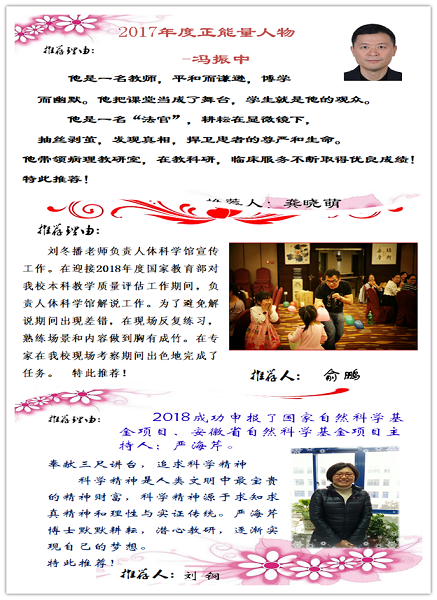 2017年度正能量人物
推荐理由:
-冯振中
他是一名教师，平和而谦逊，博学
而幽默。他把课堂当成了舞台，学生就是他的观众。
他是一名“法官”，耕耘在显微镜下，
抽丝剥茧，发现真相，捍卫患者的尊严和生命。
他带领病理教研室，在教科研，临床服务不断取得优良成绩！
特此推荐！
推荐人：龚晓萌
推荐理由:
刘冬播老师负责人体科学馆宣传
工作。在迎接2018年度国家教育部对
我校本科教学质量评估工作期间，负
责人体科学馆解说工作。为了避免解
说期间出现差错，在现场反复练习，
熟练场景和内容做到胸有成竹。在专
家在我校现场考察期间出色地完成了
任务。 特此推荐！
推荐人： 俞鹏
推荐理由:
2018成功申报了国家自然科学基
金项目、安徽省自然科学基金项目主
持人：严海芹。
奉献三尺讲台，追求科学精神
科学精神是人类文明中最宝贵
的精神财富，科学精神源于求知求
真精神和理性与实证传统。严海芹
博士默默耕耘，潜心教研，逐渐实
现自己的梦想。
特此推荐！
推荐人：刘钢